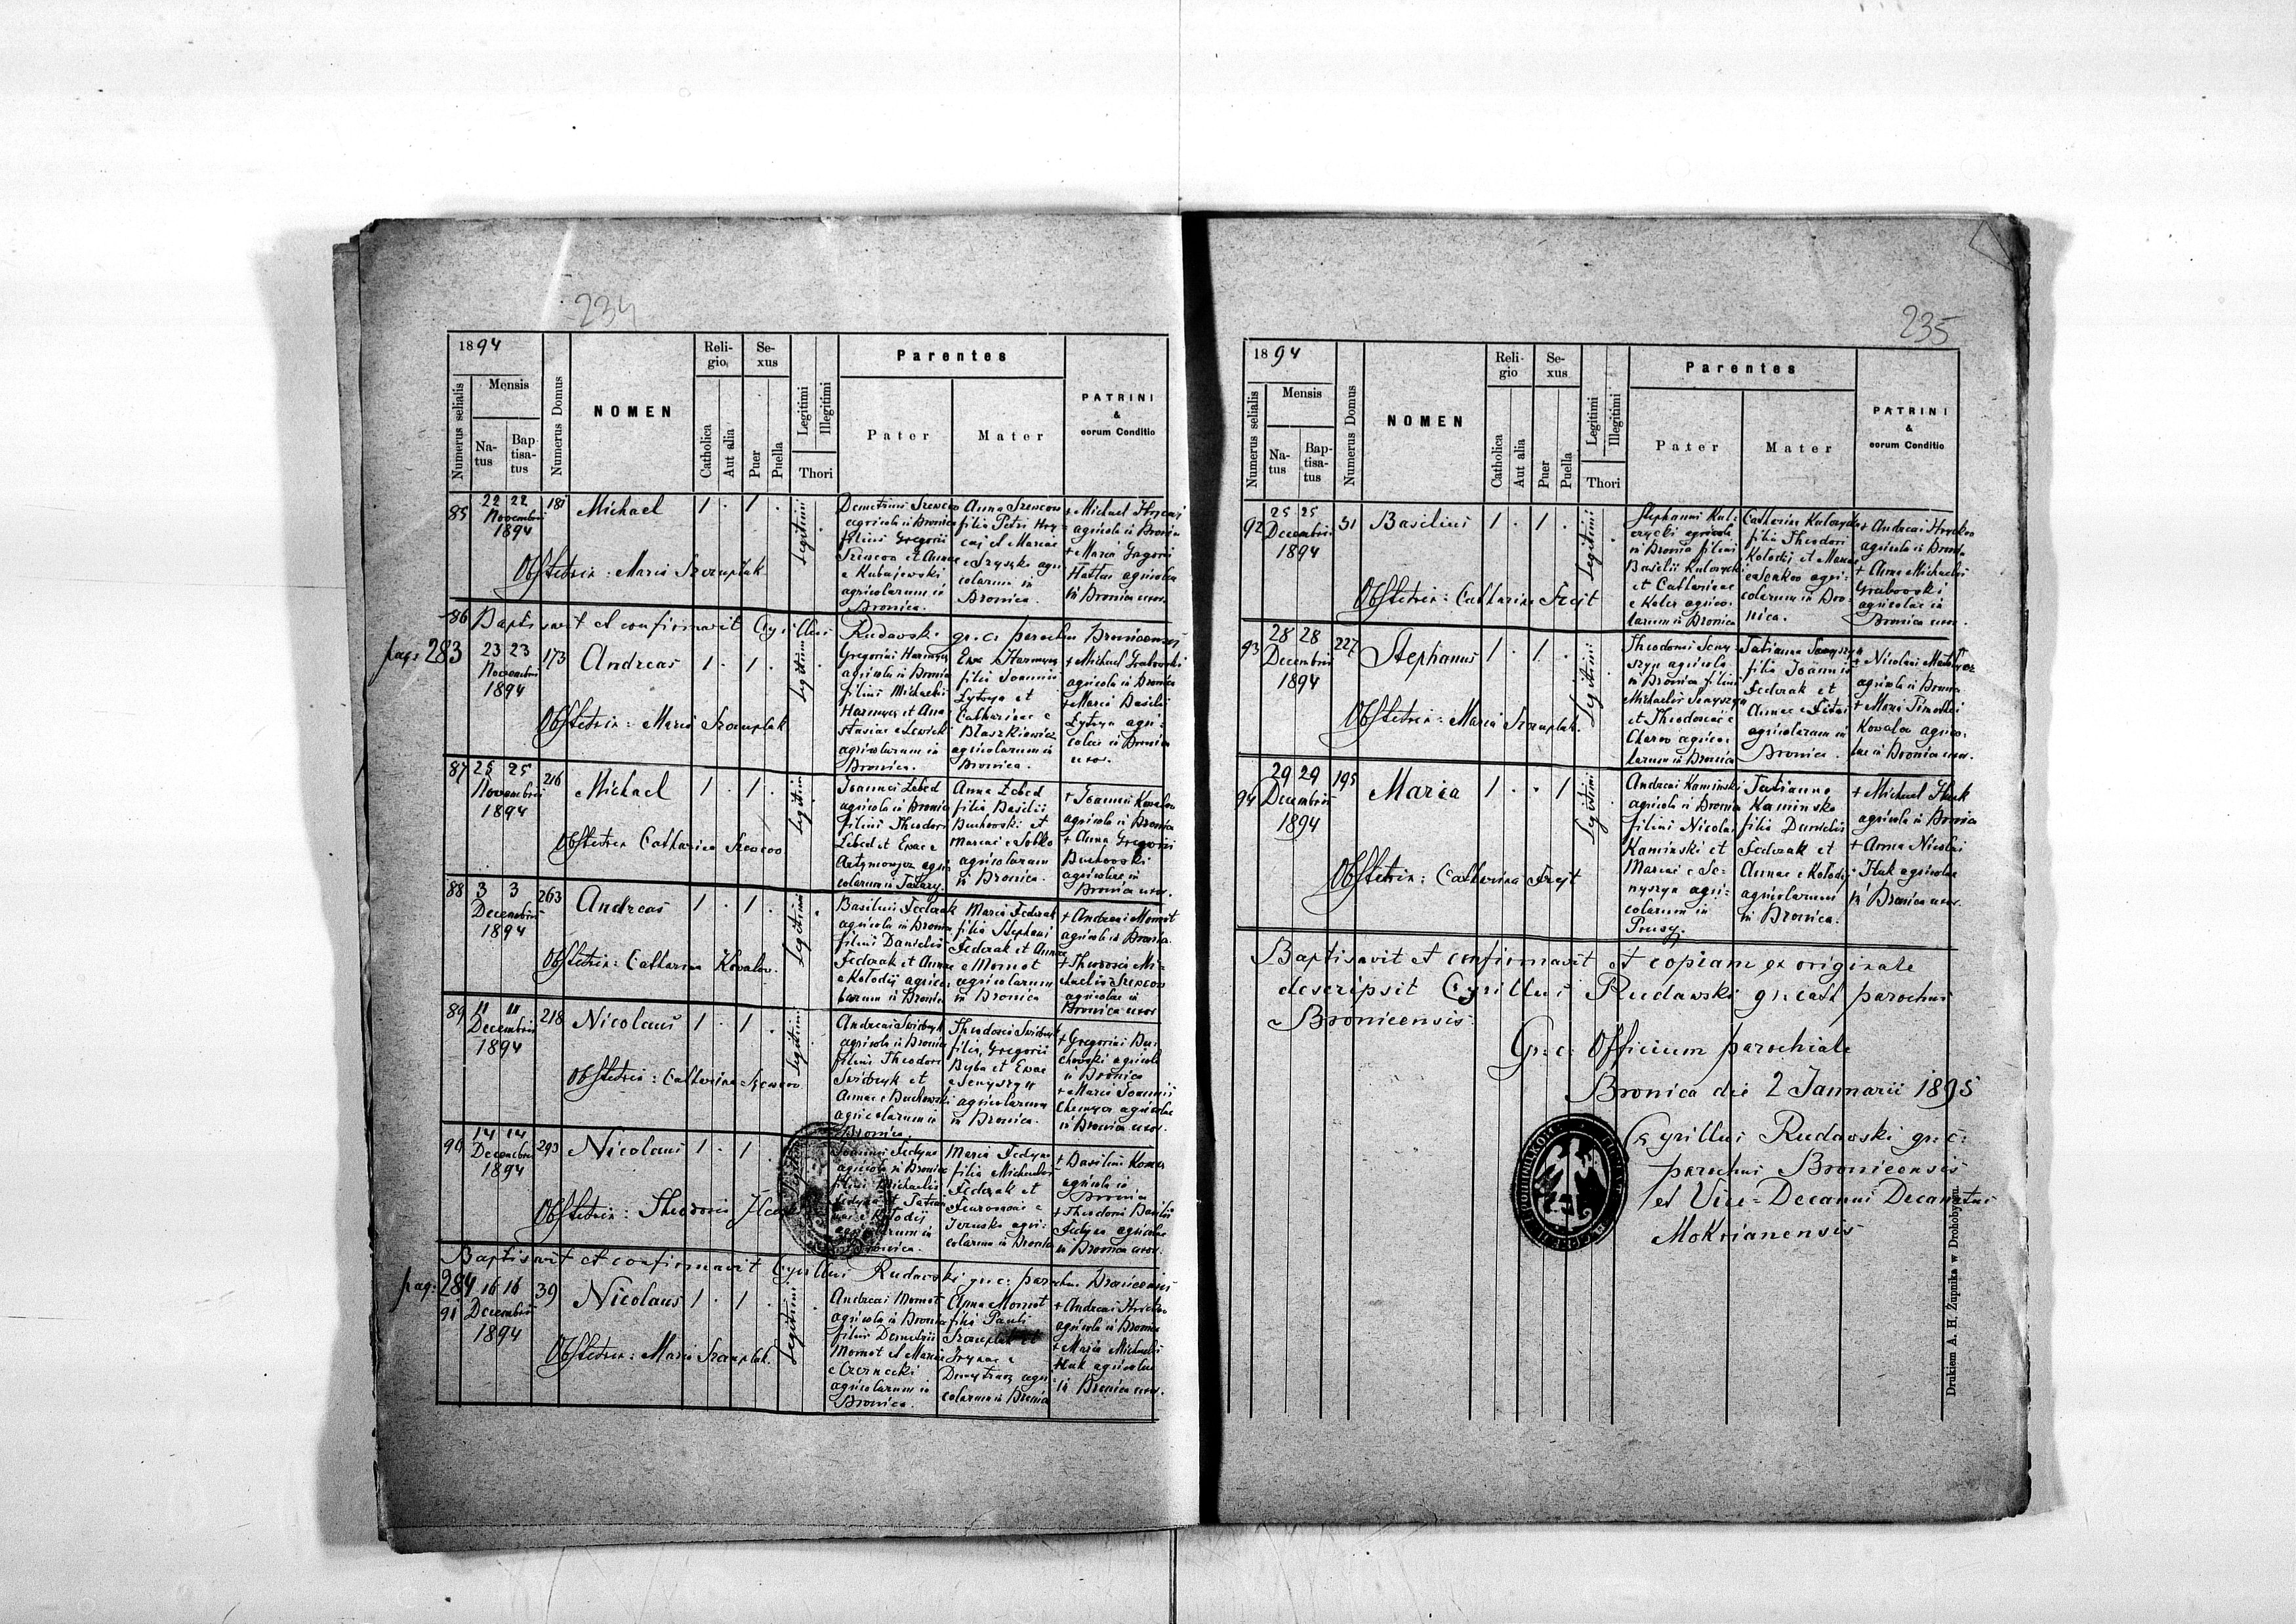 234
1894
Numerus selialis
Mensis
Natus
Baptisatus
Numerus Domus
NOMEN
Religio,
Catholica
Aut alia
Sexus
Puer
Puella
Legitimi
Illegitimi
Thori
Parentes
Pater
Mater
PATRINI
&
eorum Conditio
85
22 22
Novembris
1894
181
Michael
1 . 1 .
Legitimi
Demetrius Szewcow
agricola in Bronica
filius Gregorii
Szewcow et Annae
e Kubajewski
agricolarum in
Bronica.
Anna Szewcow
filia Petri Hry
caj et Mariae
agri
colarum in
Bronica.
+ Michael
agricola in Bronica
+ Maria Gregorii
agricolae
in Bronica uxor.
Obstetrix: Maria Szczuplak
86
Baptisavit et confirmavit Cyrillus Rudawski gr. c. parochus Bronicensis
pag: 283
23 23
Novembris
1894
173
Andreas
1 . 1 .
Legitimi
agricola in Bronica
filius Michaelis
et Ana
stasiae e Lewicki
agricolarum in
Bronica.
filia Joannis
et
Catharinae e
Blaszkiewicz
agricolarum in
Bronica.
+ Michael Grabowski
agricola in Bronica
+ Maria Basilii
agri-
colae in Bronica
uxor.
Obstetrix: Maria Szczuplak
87
25 25
Novembris
1894
216
Michael
1 . 1 .
Legitimi
Joannes Lebed
agricola in Bronica
filius Theodori
Lebed et Evae e
Artymowycz agri
colarum in Tatary.
Anna Lebed
filia Basilii
Buchowski et
Mariae e Sobko
agricolarum
in Bronica.
+ Joannes Kowalow
agricola in Bronica
+ Anna Gregorii
Buchowski
agricolae in
Bronica uxor.
Obstetrix Catharina Szewcow
88
3 3
Decembris
1894
263
Andreas
1 . 1 .
Legitimi
Basilius Fedczak
agricola in Bronica
filius Danielis
Fedczak et Annae
e Kołodij agrico-
larum in Bronica
Maria Fedczak
filia Stephani
Fedczak et Annae
e Momot
agricolarum
in Bronica
+ Andreas Momot
agricola in Bronica.
+ Theodosia Mi-
chaelis Szewcow
agricolae in
Bronica uxor
Obstetrix: Catharina Kowalow.
89
11 11
Decembris
1894
218
Nicolaus
1 . 1 .
Legitimi
Andreas
agricola in Bronica
filius Theodori
et
Annae e Buchowski
agricolarum in
Bronica.
Theodosia
filia Gregorii
Byba et Evae
e Senyszyn
agricolarum
in Bronica.
+ Gregorius Bu-
chowski agricola
in Bronica
+ Maria Joannis
agricolae
in Bronica uxor.
Obstetrix: Catharina Szewcow
90
14 14
Decembris
1894
293
Nicolaus
1 . 1 .
Joannes Fedyna
agricola in Bronica
filius Michaelis
Fedyna et Tatian
nae e Kołodij
agricolarum in
Bronica.
Maria Fedyna
filia Michaelis
Fedczak et
agri-
colarum in Bronica
+ Basilius
agricola in
Bronica
+ Theodosia Basilii
Fedyna agricolae
in Bronica uxor.
Obstetrix: Theodosia
Baptisavit et confirmavit Cyrillus Rudawski gr. c. parochus Bronicensis
pag: 284
16 16
91
Decembris
1894
39
Nicolaus
1 . 1 .
Legitimi
Andreas Momot
agricola in Bronica
filius Demetrii
Momot et Mariae
e Czernecki
agricolarum in
Bronica.
Anna Momot
filia Pauli
Szczuplak et
Irynae e
Dmytrasz agri
colarum in Bronica
+ Andreas
agricola in Bronica
+ Maria Michaelis
Huk agricolae
in Bronica uxor.
Obstetrix: Maria Szczuplak.
235
1894
Numerus selialis
Mensis
Natus
Baptisatus
Numerus Domus
NOMEN
Religio
Catholica
Aut alia
Sexus
Puer
Puella
Legitimi
Illegitimi
Thori
Parentes
Pater
Mater
PATRINI
&
eorum Conditio
92
25 25
Decembris
1894
51
Basilius
1 . 1 .
Legitimi
Stephanus Kul-
czycki agricola
in Bronica filius
Basilii Kulczycki
et Catharinae
e agrico-
larum in Bronica
Catharina Kulczycka
filia Theodori
Kołodij et Mariae
e Senkow agri-
colarum in Bro-
nica.
+ Andreas
agricola in Bronica
+ Anna Michaelis
Grabowski
agricolae in
Bronica uxor.
Obstetrix: Catharina Frejt
93
28 28
Decembris
1894
227
Stephanus
1 . 1 .
Legitimi
Theodorus Seny-
szyn agricola
in Bronica filius
Michaelis Senyszyn
et Theodosiae e
agrico-
larum in Bronica
Tatianna Senyszyn
filia Joannis
Fedczak et
Annae e
agricolarum in
Bronica.
+ Nicolaus
agricola in Bronica
+ Maria Timothei
Kowalow agrico-
lae in Bronica uxor.
Obstetrix: Maria Szczuplak.
94
29 29
Decembris
1894
195
Maria
1 . . 1
Legitimi
Andreas Kaminski
agricola in Bronica
filius Nicolai
Kaminski et
Mariae e Se-
nyszyn agri-
colarum in
Prusy.
Tatianna
Kaminska
filia Danielis
Fedczak et
Annae e Kołodij
agricolarum
in Bronica.
+ Michael Huk
agricola in Bronica
+ Anna Nicolai
Huk agricolae
in Bronica uxor.
Obstetrix: Catharina Frejt
Baptisavit et confirmavit et copiam ex originale
descripsit Cyrillus Rudawski gr. cath parochus
Bronicensis.
Gr. c. Officium parochiale
Bronica die 2 Januarii 1895
Cyrillus Rudawski gr. c.
parochus Bronicensis
et Vice-Decanus Decanatus
Mokrianensis
Drukiem A. H. Żupnika w Drohobyczu.